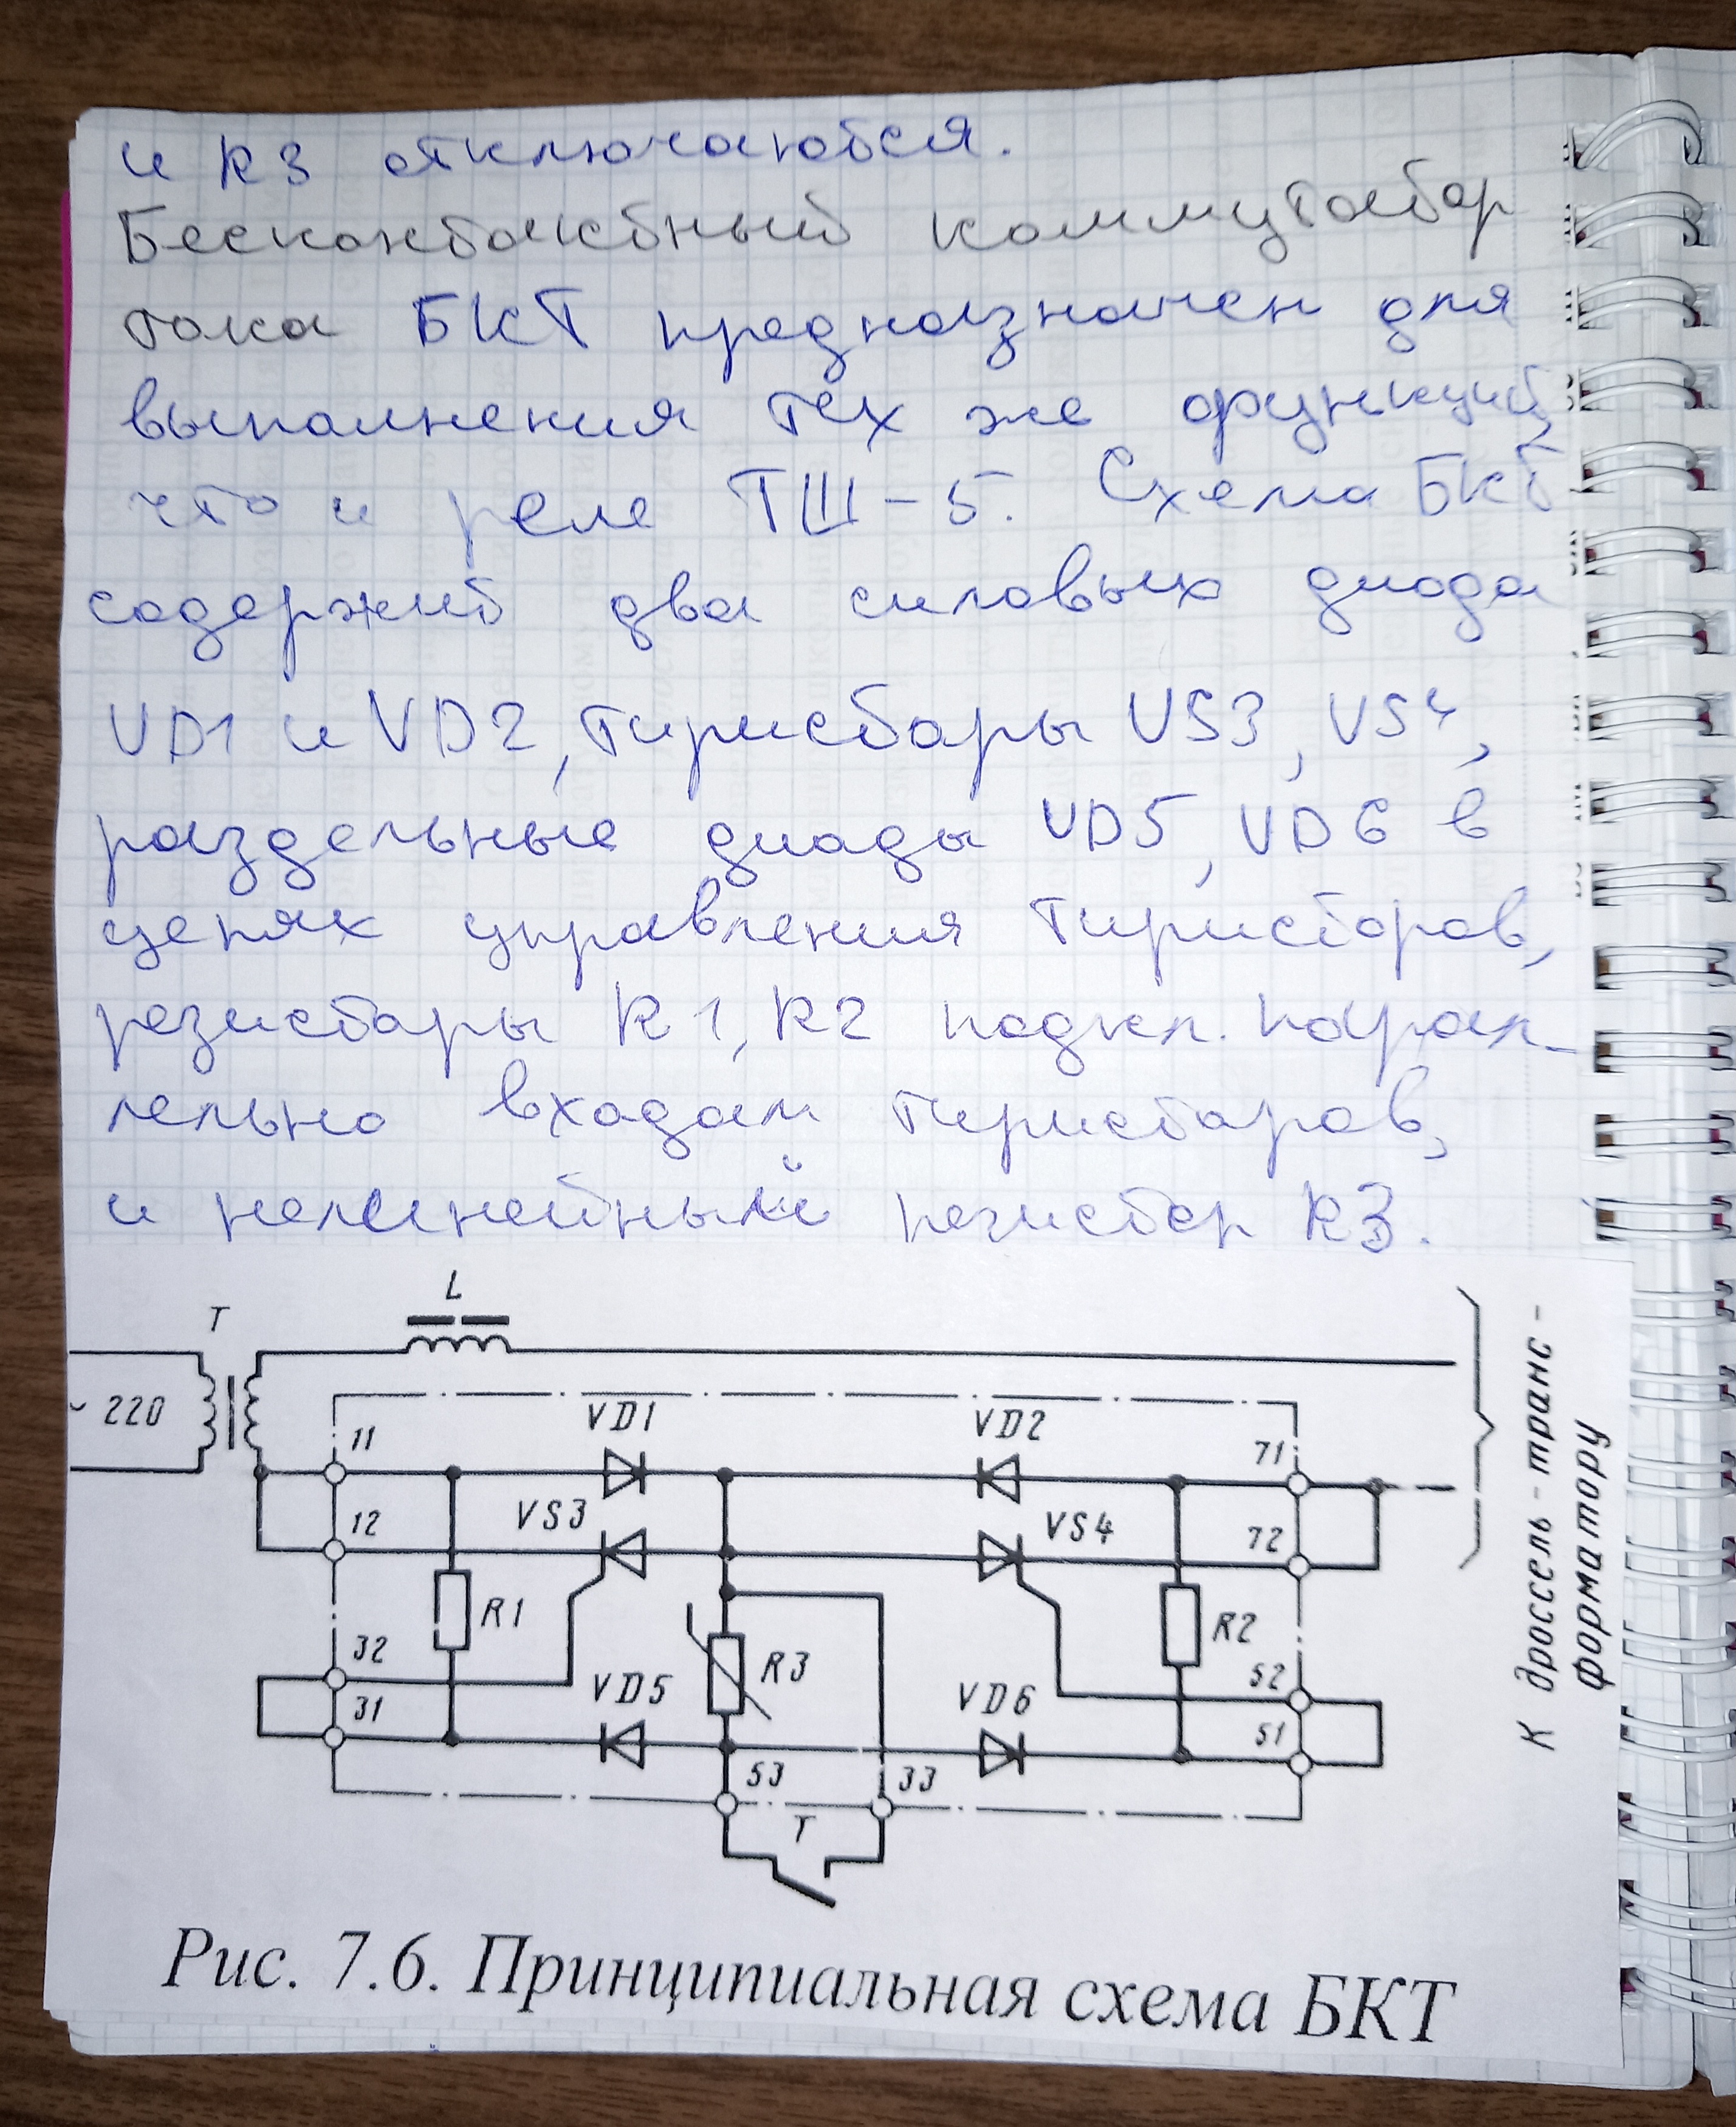 и R3 отключаются.
Бесконтактный коммутатор
тока БКТ предназначен для
выполнения тех же функций
что и реле ТШ-5. Схема БКТ
содержит два силовых диода
VD1 и VD2, тиристоры VS3, VS4,
раздельные диоды VD5, VD6 в
цепях управления тиристоров,
резисторы R1, R2 подкл. парал-
лельно входам тиристоров,
и нелинейный резистор R3.
L
T
~ 220
VD1
VD2
11
71
VS3
VS4
12
72
R1
R2
32
R3
52
VD5
VD6
31
51
53
33
T
К дроссель-транс-
форматору
Рис. 7.6. Принципиальная схема БКТ